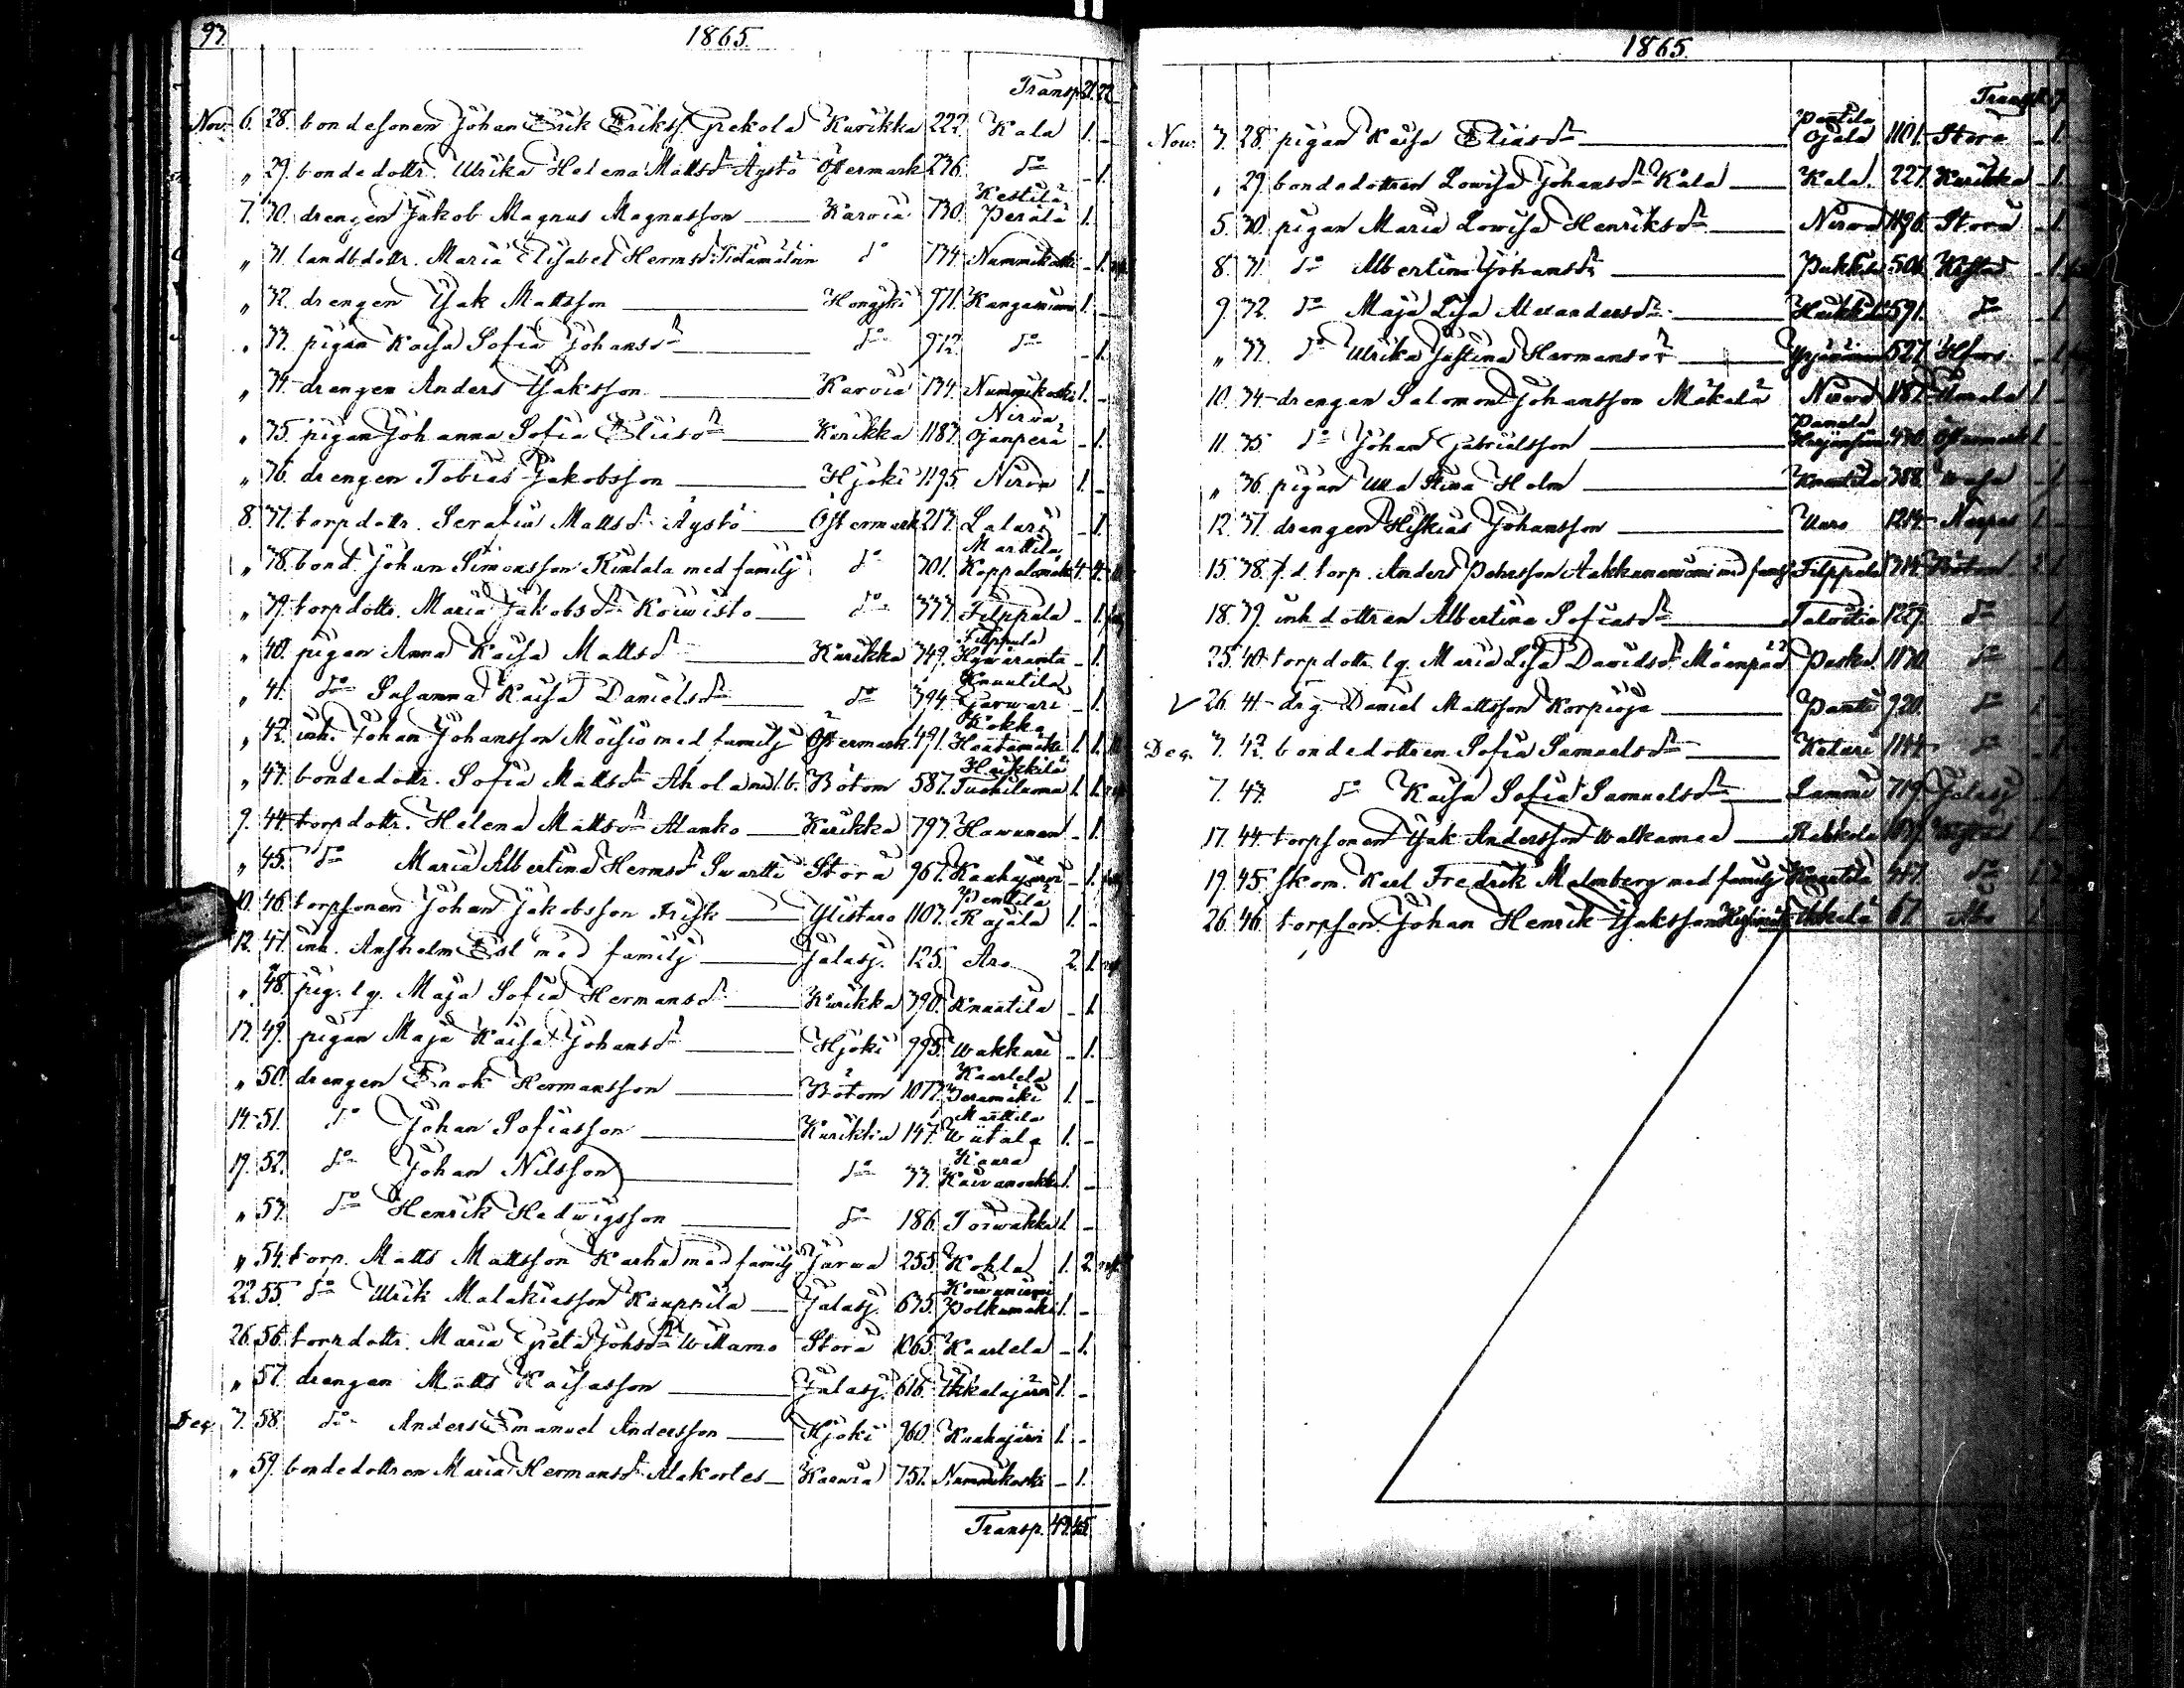 93.
1865.
Transp. 21. 22.
Nov. 6. 28. bondesonen Johan Erik Erikss. Grekola Kurikka 222. Kala 1. -
" 29. bondedottr. Ulrika Helena Mattsdr Äystö Östermark 236. do - 1.
7. 30. drengen Jakob Magnus Magnusson Karvia 730. Kestilä Perälä 1.
" 31. landbdottr. Maria Elisabet Hermsdr do 734. Nummikoski - 1.
" 32. drengen Isak Mattsson Hongjki 971. Kangasniemi 1. -
" 33. pigan Kaisa Sofia Johansdr do 972. do - 1.
" 34. drengen Anders Isaksson Karvia 734. Nummikoski 1. -
" 35. pigan Johanna Sofia Eliasdr Kurikka 1187. Nirva Ojanperä - 1.
" 36. drengen Tobias Jakobsson Hjoki 1195. Nirva 1. -
8. 37. torpdottr. Serafia Mattsdr Äystö Östermark 213. Lalari - 1.
" 38. bond. Johan Simonsson Rintala med familj do 301. Marttila Koppelomäki 4. 4.
" 39. torpdottr. Maria Jakobsdr Koivisto do 377. Filppula - 1.
" 40. pigan Anna Kaisa Mattsdr Kurikka 349. Filppula Hywäranta - 1.
" 41. do Susanna Kaisa Danielsdr do 394. Knuutila Garwari - 1.
" 42. inh. Johan Johansson Moisio med familj Östermark. 491. Kokko Hautamäki 1. 1.
" 43. bondedottr. Sofia Mattsdr Ahola med 1 b. Bötom 587. Heikkilä Tuohiluoma 1. 1.
9. 44. torpdottr. Helena Mattsdr Alanko Kurikka 797. Hawunen - 1.
" 45. do Maria Albertina Hermsdr Swartti Storå 967. Kauhajärvi - 1.
10. 46. torpsonen Johan Jakobsson Frisk Ylistaro 1107. Penttilä Rajala 1. -
12. 47. inh. Anshelm Esl med familj Jalasj. 125. Aro 2. 1.
" 48. pig. lq. Maja Sofia Hermansdr Kurikka 390. Knuutila - 1.
13. 49. pigan Maja Kaisa Johansdr Hjoki 995. Wakkuri - 1.
" 50. drengen Enok Hermansson Bötom 1073. Kaarlela Peramäki 1. -
14. 51. do Johan Sofiasson Kurikka 147. Marttila Wiitala 1. -
19. 52. do Johan Nilsson do 33. Kaura Kaivonokka 1. -
" 53. do Henrik Hedwigsson do 186. Torwakka 1. -
" 54. torp. Matts Mattsson Karha med familj Jurva 255. Kokla 1. 2.
22. 55. do Ulrik Malakiasson Kauppila Jalasj. 675. Koivuniemi Polkumäki 1. -
26. 56. torpdottr. Maria Greta Johsdr Willamo Storå 1065. Kaarlela - 1.
" 57. drengen Matts Kaisasson Jalasj. 616. Ikkeläjärvi 1. -
Dec. 3. 58. do Anders Emanuel Andersson Hjoki 960. Kauhajärvi 1. -
" 59. bondedottren Maria Hermansdr Alakortes Karvia 757. Nummikoski - 1.
Transp. 43. 45.
1865.
Transp.
Nov. 3. 28. pigan Kaisa Eliasdr Pentila Ojala 1101. Storå - 1.
" 29. bondedottren Lowisa Johansdr Kala Kala. 227. Kurikka - 1.
5. 30. pigan Maria Lowisa Henriksdr Nirva 1196. Storå - 1.
8. 31. do Albertina Johansdr Pukkila 506. - 1.
9. 32. do Maja Lisa Alexandersdr Heikkilä 591. do - 1.
" 33. do Ulrika Justina Hermansdr 527. Hfors - 1.
10. 34. drengen Salomon Johansson Mäkelä Nirva 1187. 1.
11. 35. do Johan Gabrielsson Panula 470. Östermark 1.
" 36. pigan Ulla Stina Holm Knuutila 388. Wasa - 1.
12. 37. drengen Hiskias Johansson Uuro 1214. Nerpes 1.
15. 38. f.d. torp. Anders Petersson med familj Filppula Bötom
18. 39. inh dottren Albertina Sofiasdr Talvitie 1227. do
25. 40. torpdottr. lq. Maria Lisa Davidsdr Mäenpää Paska. 1170. do
V 26. 41. drg. Daniel Mattsson Korpioja Panttu 920. do
Dec. 3. 42. bondedottren Sofia Samuelsdr Keturi 1144. do
7. 43. do Kaisa Sofia Samuelsdr Lammi 719. Jalasj.
17. 44. torpsonen Isak Andersson Walkamaa Rahkola
19. 45. skom. Karl Fredrik Malmberg med familj Knuutila 417. do
26. 46. torpson. Johan Henrik Isaksson Ikkelä 67. Åbo